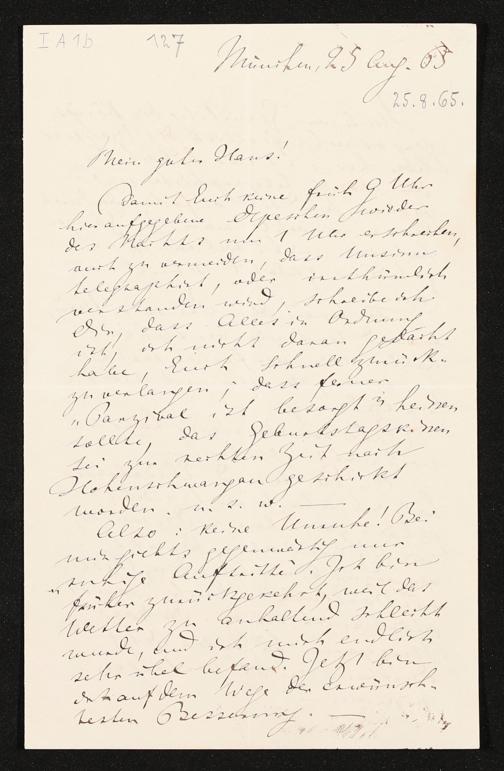 I A 1b 127
München, 25 Aug. 65
25.8.65.
Mein guter Hans!
Damit Euch keine früh 9 Uhr
hier aufgegebene Depeschen wieder
des Nachts um 1 Uhr erschrecken,
auch zu vermeiden, dass Unsinn
telegraphirt, oder irrthümlich
verstanden wird, schreibe ich
Dir, dass Alles in Ordnung
ist, ich nicht daran gedacht
habe, Euch schnell zurück-
zuverlangen; dass ferner
"Parzival ist besorgt" heissen
sollte, das Geburtstagskissen
sei zur rechten Zeit nach
Hohenschwangau geschickt
worden. u. s. w. —
Also: keine Unruhe! Bei
mir giebts gegenwärtig nur
ruhige Auftritte. Ich bin
früher zurückgekehrt, weil das
Wetter zu anhaltend schlecht
wurde, und ich mich endlich
sehr übel befand. Jetzt bin
ich auf dem Wege der erwünsch-
testen Besserung. —